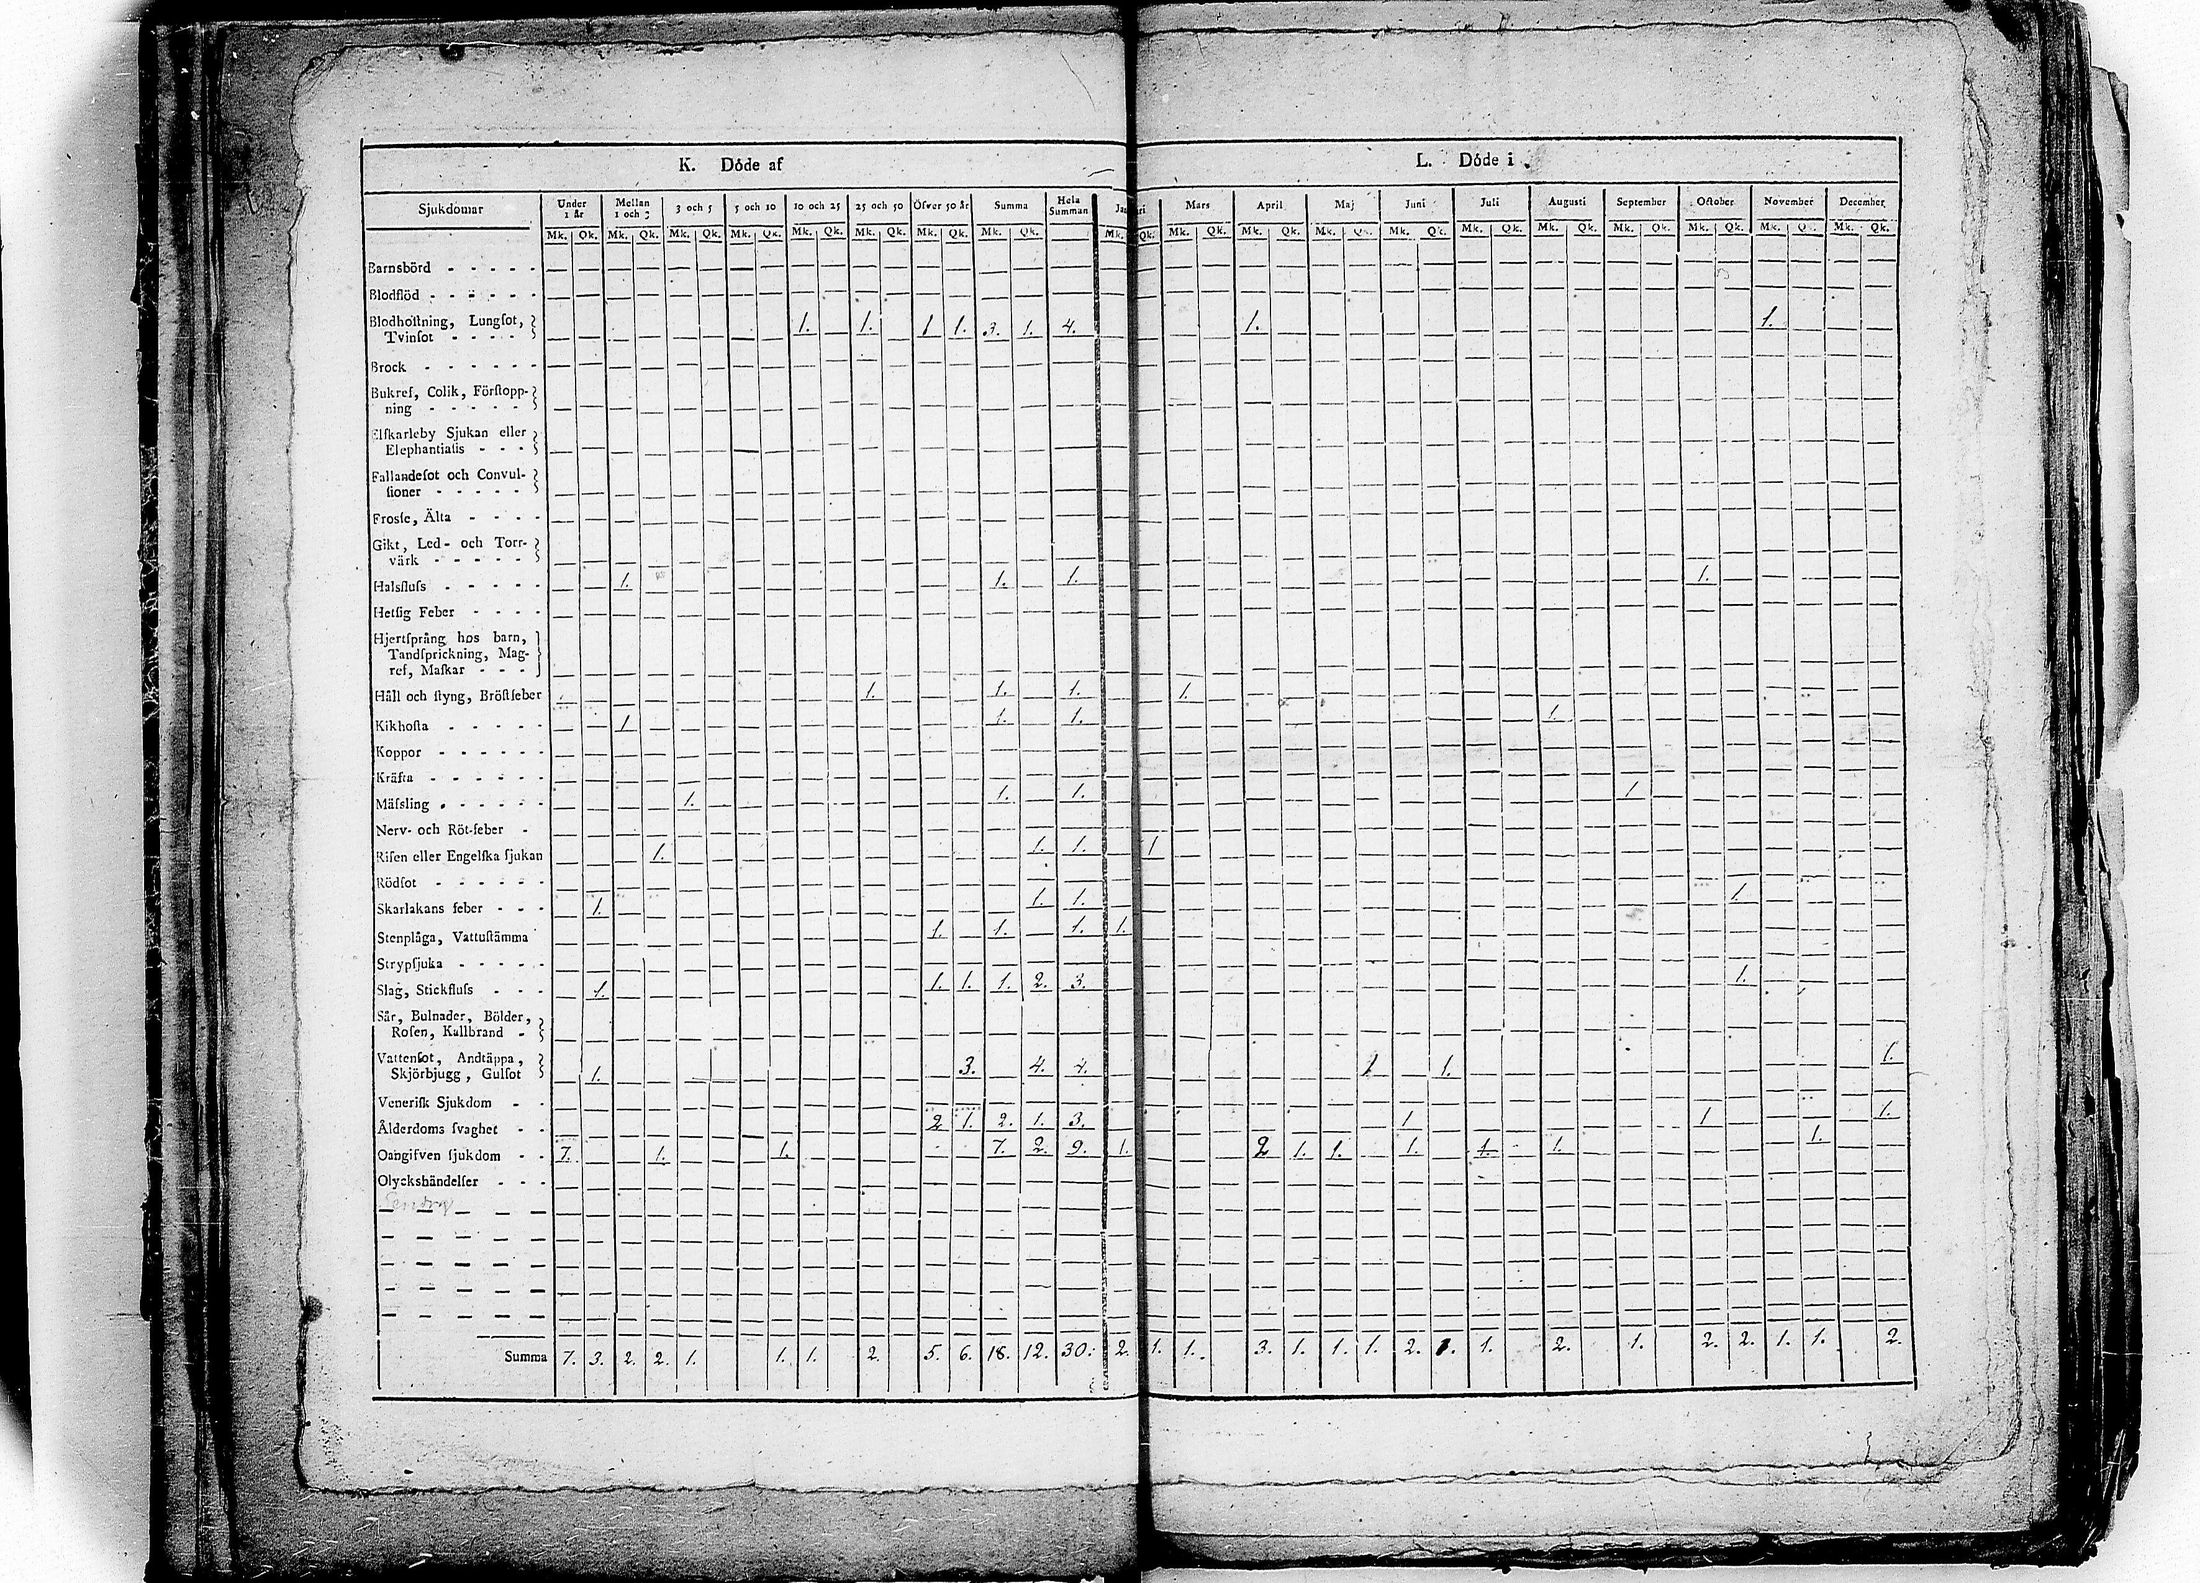 K. Döde af L. Döde i
Sjukdomar Under 1 år Mellan 1 och 3 3 och 5 5 och 10 10 och 25 25 och 50 Öfver 50 år Summa Hela Summan Mars April Maj Juni Juli Augusti September October November December
Mk. Qk. Mk. Qk. Mk. Qk. Mk. Qk. Mk. Qk. Mk. Qk. Mk. Qk. Mk. Qk. Mk. Qk. Mk. Qk. Mk. Qk. Mk. Qk. Mk. Qk. Mk. Qk. Mk. Qk. Mk. Qk. Mk. Qk. Mk. Qk. Mk. Qk.
Barnsbörd - - - - -
Blodflöd - - - - - -
Blodhoſtning, Lungſot,
Tvinſot - - - - 1. 1. 1 1. 3. 1. 4. 1. 1.
Brock - - - - - -
Bukref, Colik, Förſtopp-
ning - - - - -
Elſkarleby Sjukan eller
Elephantiaſis - - -
Fallandeſot och Convul-
ſioner - - - - -
Frosſe, Älta - - - -
Gikt, Led- och Torr-
värk - - - - -
Halsfluſs - - - - - 1. 1. 1. 1.
Hetſig Feber - - - -
Hjertſprång hos barn,
Tandſprickning, Mag-
ref, Maſkar - - -
Håll och ſtyng, Bröſtfeber 1. 1. 1. 1.
Kikhoſta - - - - - 1. 1. 1. 1.
Koppor - - - - - -
Kräfta - - - - - -
Mäſsling - - - - - - 1. 1. 1. 1
Nerv- och Röt-feber -
Riſen eller Engelſka ſjukan 1. 1. 1. 1
Rödſot - - - - - -
Skarlakans feber - - - 1. 1. 1. 1.
Stenplåga, Vattuſtämma 1. 1. 1. 1.
Strypſjuka - - - - -
Slag, Stickfluſs - - - 1. 1. 1. 1. 2. 3. 1.
Sår, Bulnader, Bölder,
Roſen, Kallbrand -
Vattenſot, Andtäppa,
Skjörbjugg, Gulſot 1. 3. 4. 4. 1 1. 1.
Veneriſk Sjukdom - -
Ålderdoms ſvaghet - - 2 1. 2. 1. 3. 1 1 1.
Oangifven ſjukdom - - 7. 1. 1. 7. 2. 9. 1. 2 1. 1. 1. 1. 1. 1.
Olyckshändelſer - - -
Summa 7. 3. 2. 2. 1. 1. 1. 2. 5. 6. 18. 12. 30. 2. 1. 1. 3. 1. 1. 1. 2. 1. 1. 2. 1. 2. 2. 1. 1. 2.